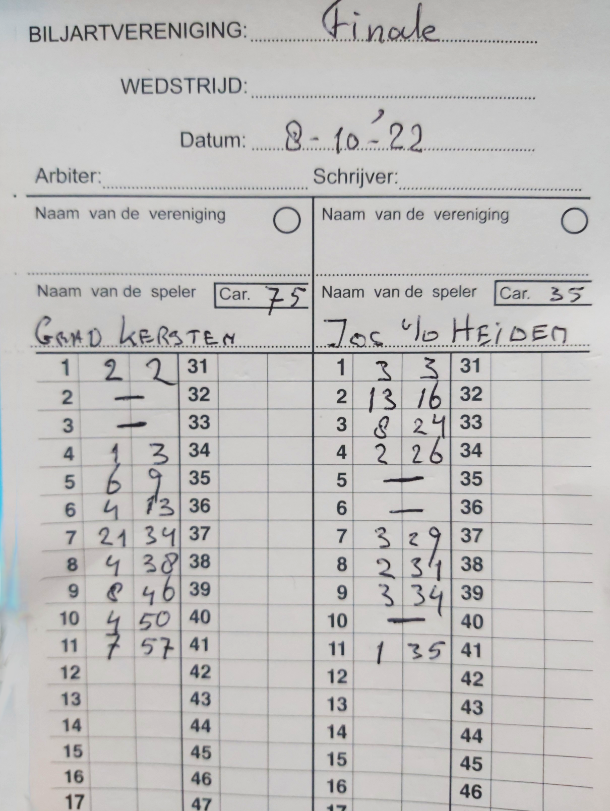 BILJARTVERENIGING: Finale
WEDSTRIJD:
Datum: 8-10-'22
Arbiter: Schrijver:
Naam van de vereniging Naam van de vereniging
Naam van de speler Car. 75 Naam van de speler Car. 35
GRAD KERSTEN JOS v/d HEIDEN
1 2 2 31 1 3 3 31
2 — 32 2 13 16 32
3 — 33 3 8 24 33
4 1 3 34 4 2 26 34
5 6 9 35 5 — 35
6 4 13 36 6 — 36
7 21 34 37 7 3 29 37
8 4 38 38 8 2 31 38
9 8 46 39 9 3 34 39
10 4 50 40 10 — 40
11 7 57 41 11 1 35 41
12 42 12 42
13 43 13 43
14 44 14 44
15 45 15 45
16 46 16 46
17 47 17